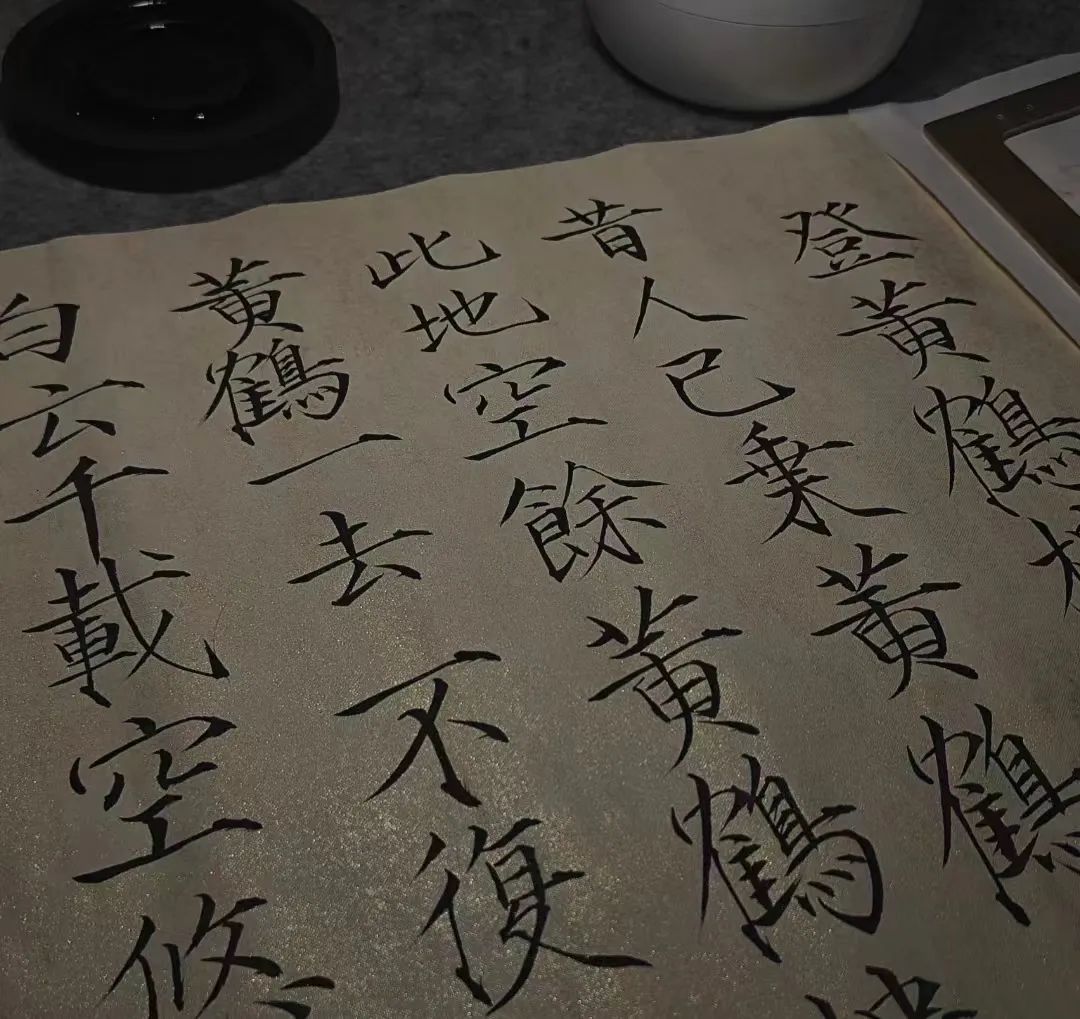 登黄鶴
昔人已乘黄鶴
此地空餘黄鶴
黄鶴一去不復
白云千載空悠